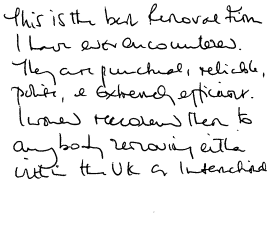 This is the best Removal Firm
I have ever encountered.
They are punctual, reliable,
polite, & extremely efficient.
I would recommend them to
anybody removing either
within the UK or International